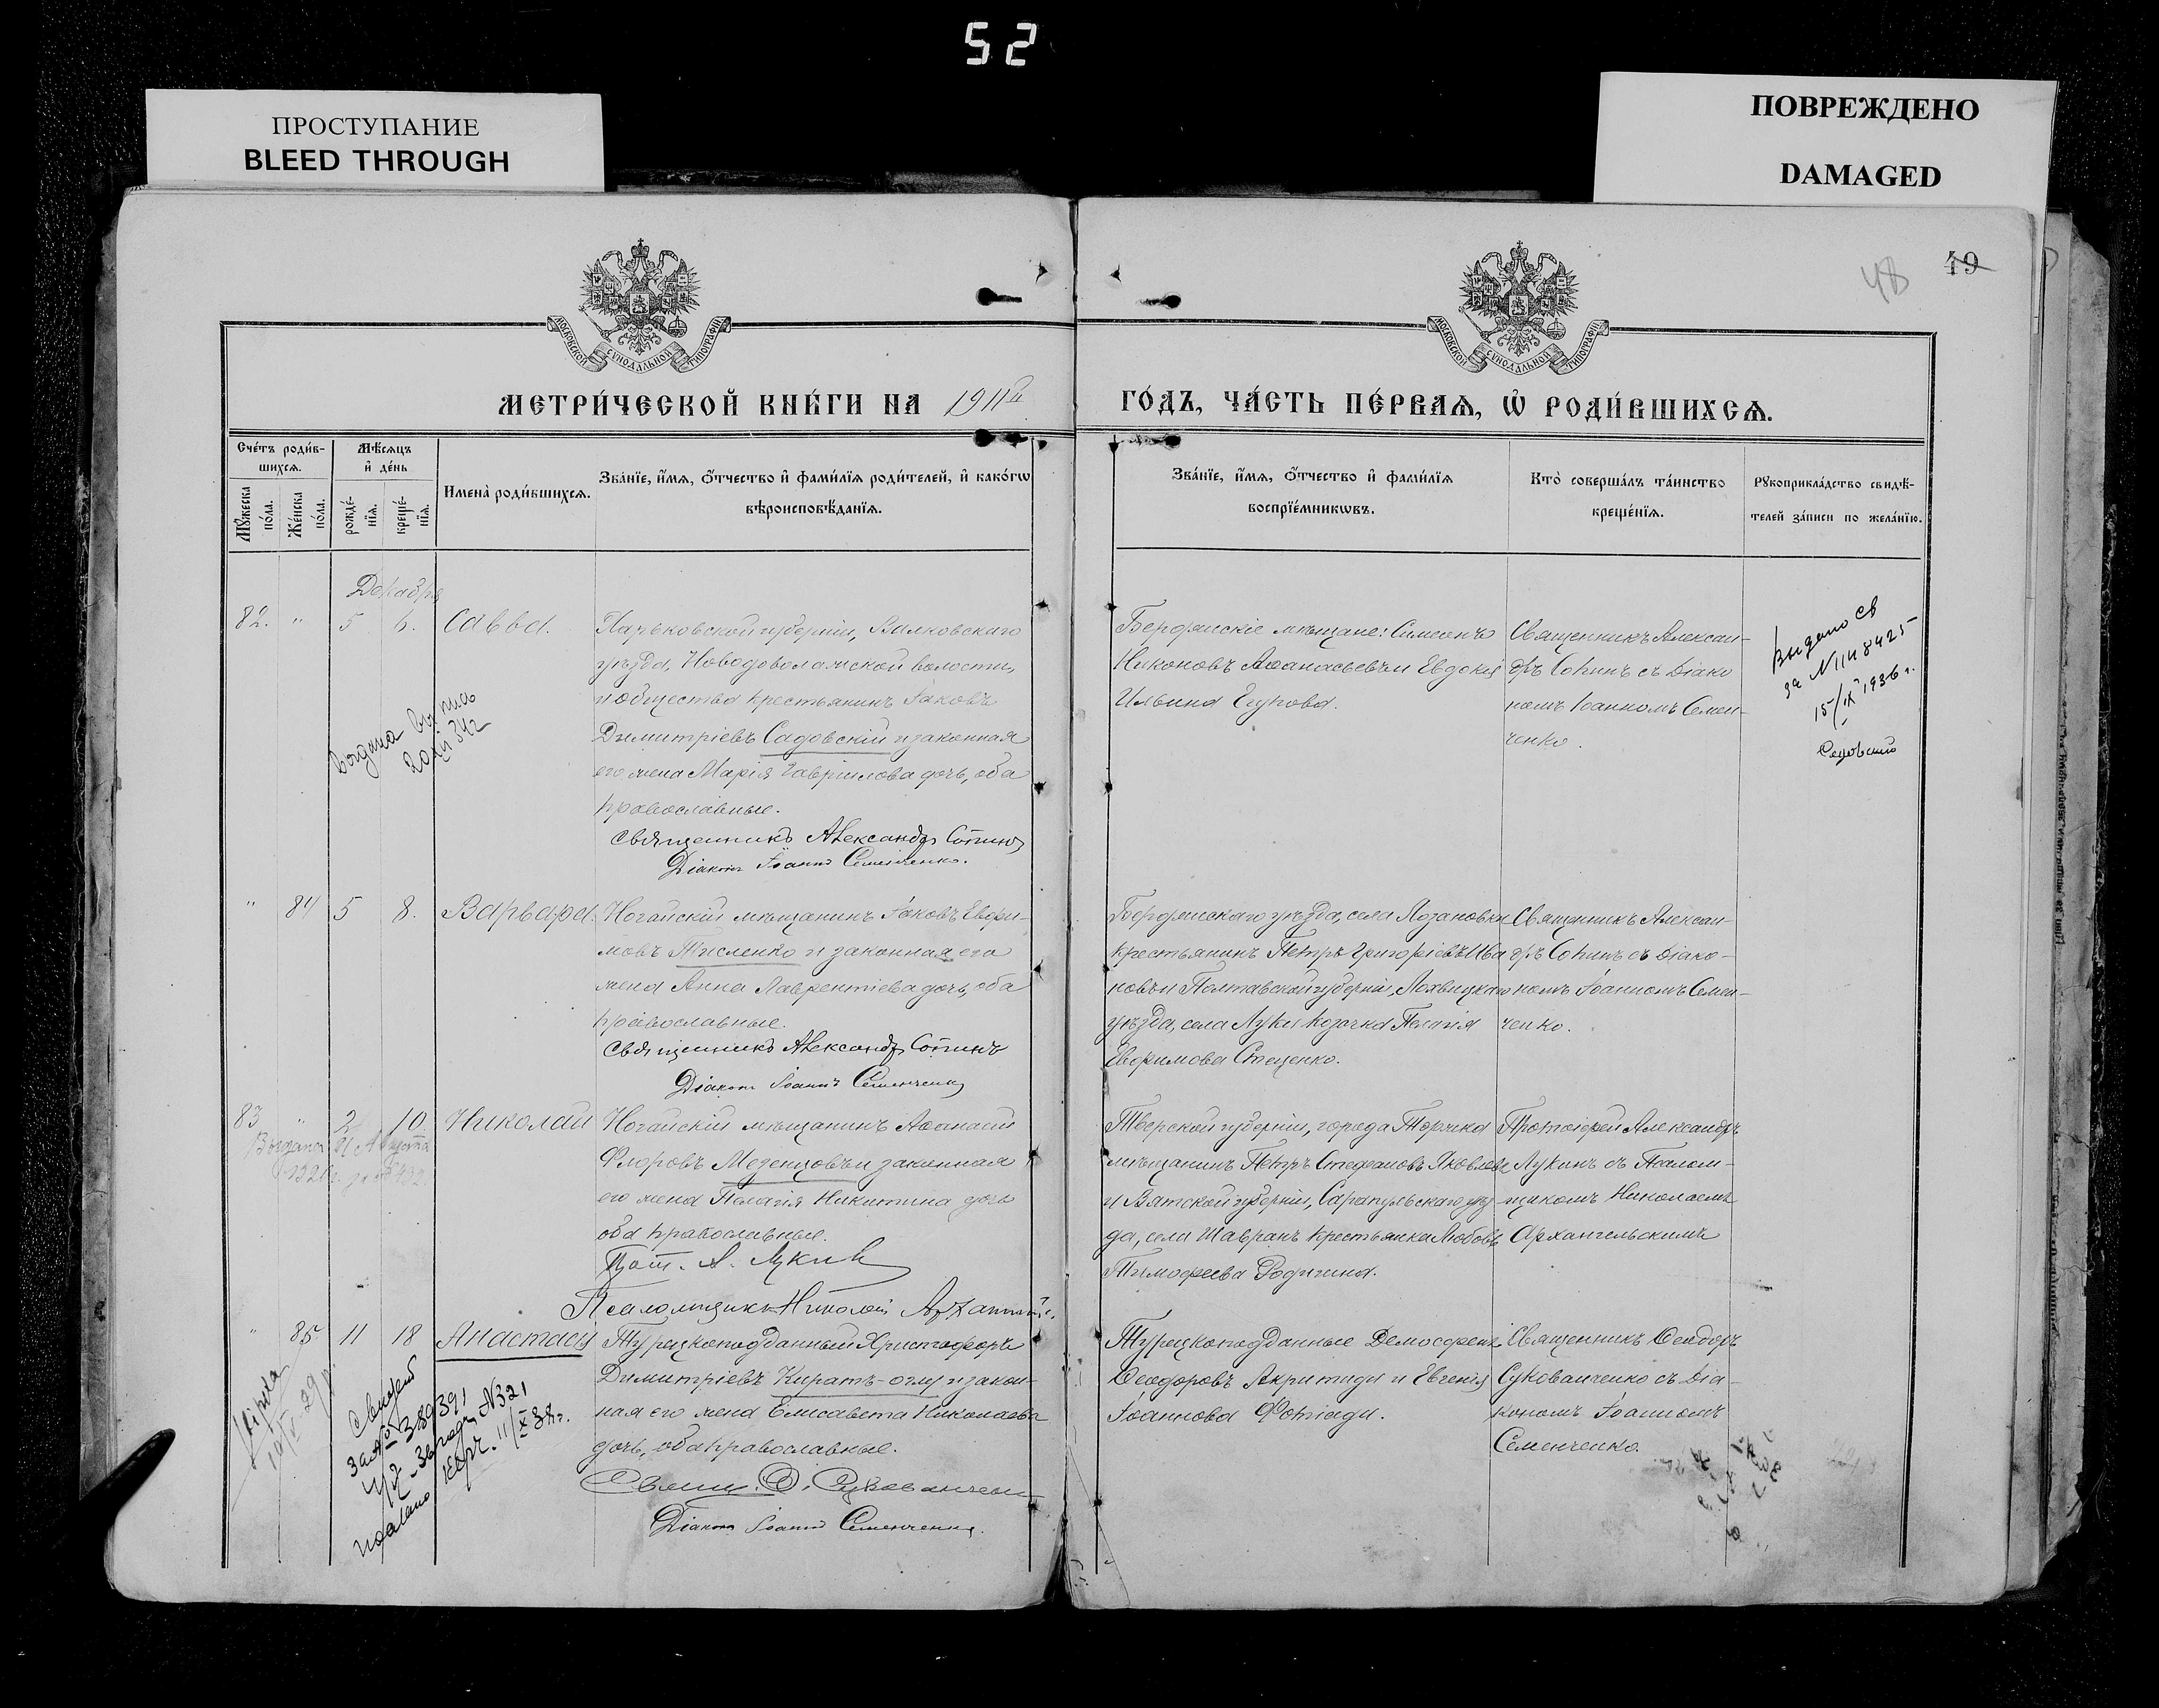 52
ПРОСТУПАНИЕ
BLEED THROUGH
ПОВРЕЖДЕНО
DAMAGED
48
49
МОСКОВСКОЙ СУНОДАЛЬНОЙ ТИПОГРАФІИ
МОСКОВСКОЙ СУНОДАЛЬНОЙ ТИПОГРАФІИ
МЕТРИ́ЧЕСКОЙ КНИ́ГИ НА 1911й
ГО́ДЪ, ЧА́СТЬ ПЕ́РВАѦ, Ѡ РОДИ́ВШИХСѦ.
Сче́тъ роди́в-
шихсѧ.
Мѣ́сѧцъ
и де́нь
Мꙋ́жеска по́ла.
Же́нска по́ла.
рожде́-
нїѧ.
креще́-
нїѧ.
Имена̀ роди́вшихсѧ.
Зва́нїе, и́мѧ, ѻ́тчество и фами́лїѧ роди́телей, и како́гѡ
вѣроисповѣ́данїѧ.
Зва́нїе, и́мѧ, ѻ́тчество и фами́лїѧ
воспрїе́мникѡвъ.
Кто̀ соверша́лъ та́инство
креще́нїѧ.
Рꙋкоприкла́дство свидѣ́-
телей за́писи по жела́нїю.
Декабрь
82. " 5 6. Савва.
Харьковской губерніи, Валковскаго
уѣзда, Новодоволажской волости,
и общества крестьянинъ Іаковъ
Димитріевъ Садовскій и законная
его жена Марія Гавріилова дочь, оба
православные.
Священникъ Александръ Сопинъ
Діаконъ Іоаннъ Семенченко.
Выдана выпись
Бердянскіе мѣщане: Симеонъ
Никоновъ Аѳанасьевъ и Евдокія
Ильина Егунова.
Священникъ Алексан-
дръ Сопинъ съ Діако
номъ Іоанномъ Семен-
ченко.
Выдано св
за N IIU 8425
15/IX 1936 г.
" 84 5 8. Варвара.
Ногайскій мѣщанинъ Іаковъ Евфи-
мовъ Тисленко и законная его
жена Анна Лаврентіева дочь, оба
православные.
Священникъ Александръ Сопинъ
Діаконъ Іоаннъ Семенченко
Бердянскаго уѣзда, села Лозановки
крестьянинъ Петръ Григоріевъ Ива
новъ и Полтавской губерніи, Лохвицкаго
уѣзда, села Луки козачка
Евфимова Стеценко.
Священникъ Алексан-
дръ Сопинъ съ Діако-
номъ Іоанномъ Семен-
ченко.
83 " 2 10. Николай
Ногайскій мѣщанинъ Аѳанасій
Флоровъ Мезенцовъ и законная
его жена Пелагія Никитина дочь
оба православные.
Прот. А. Лукин
Псаломщикъ Николай
Выдана Августа
Тверской губерніи, города Торжка
мѣщанинъ Петръ Стефановъ Яковлевъ
и Вятской губерніи, Сарапульскаго уѣз-
да, села Шавранъ крестьянка Любовь
Тимофеева Родигина.
Протоіерей Александръ
Лукинъ съ Псалом-
щикомъ Николаемъ
Архангельскимъ
" 85 11 18 Анастасія
Турецкоподданный Христофоръ
Димитріевъ Киратъ-оглу и закон-
ная его жена Елисавета Николаева
дочь, оба православные.
Свящ. Ѳ. Сукованченко
Діаконъ Іоаннъ Семенченко.
Турецкоподданные Демосфенъ
Ѳеодоровъ Акритиди и Евгенія
Іоаннова Фотіади.
Священникъ Ѳеодоръ
Сукованченко съ Діа-
кономъ Іоанномъ
Семенченко.